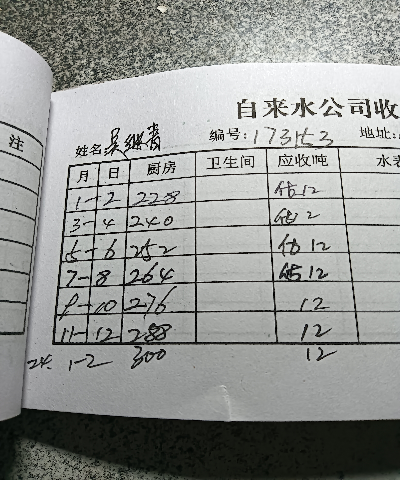 注
自来水公司收
姓名吴继青 编号:173153 地址:
月 日 厨房 卫生间 应收吨 水表
1-2 228 估12
3-4 240 估2
5-6 252 估12
7-8 264 估12
9-10 276 12
11-12 288 12
24. 1-2 300 12